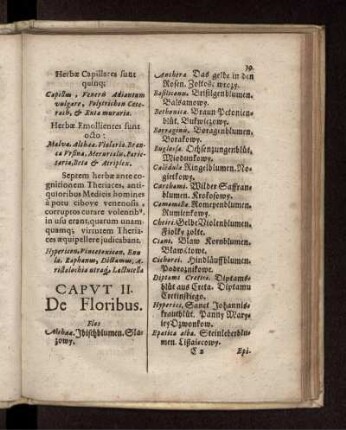 Herbæ Capillares sunt
quinq;
vulgare, Polytrichon
rach, & Ruta muraria.
Herbæ Emollientes sunt
octo:
Malva. Althæa. Violaria. Bran-
ca Vrsina, Mercurialis. Parie-
taria, Beta & Atriplex.
Septem herbæ ante co-
gnitionem Theriaces, anti-
quioribus Medicis homines
à potu cibove venenosi,
corruptos curare volentib⁹.
in usu erant, quarum unam-
quamq; virtutem Theria-
ces æquipellere judicabant.
Hypericon, Vincetoxicon, Enu-
la. Raphanus, Dictamus, A-
ristolochia utraq; Lactucella
CAPVT II.
De Floribus.
Flos
Althææ. Ibischblumen. Sla-
zowy.
19.
Anthera. Das gelbe in den
Rosen. Zoltość w rozy.
Basiliconis.
Balsamowy.
Bethonicæ. Braun Betonien-
blüt. Bukwiczowy.
Borraginis. Boragenblumen.
Borakowy.
Buglossæ. Ochsenzungenblüt,
Calêdulæ Ringelblumen. No-
gietkowy.
Carthami. Wilder Saffran-
blumen. Krokosowy.
Camomillæ.
Rumienkowy.
Cheiri. Gelbe Violenblumen.
Fiolki zolte.
Ciani. Blaw Kornblumen.
Bławatowe.
Cichorei. Hindläufftblumen.
Podroznikowe.
Diptami Cretici. Diptams-
blüt aus Creta. Diptamu
Cretinskiego.
Hyperici, Sanct Johannis-
krautblüt. Panny Mary-
iey Dzwonkow.
Epatica alba. Steinleberblu-
men.
C 2 Epi-